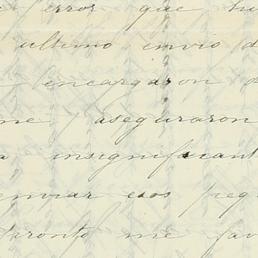 error que hu
ultimo envio d
encargaron d
me aseguraron
a insignificant
enviar esos peq
pronto me fav